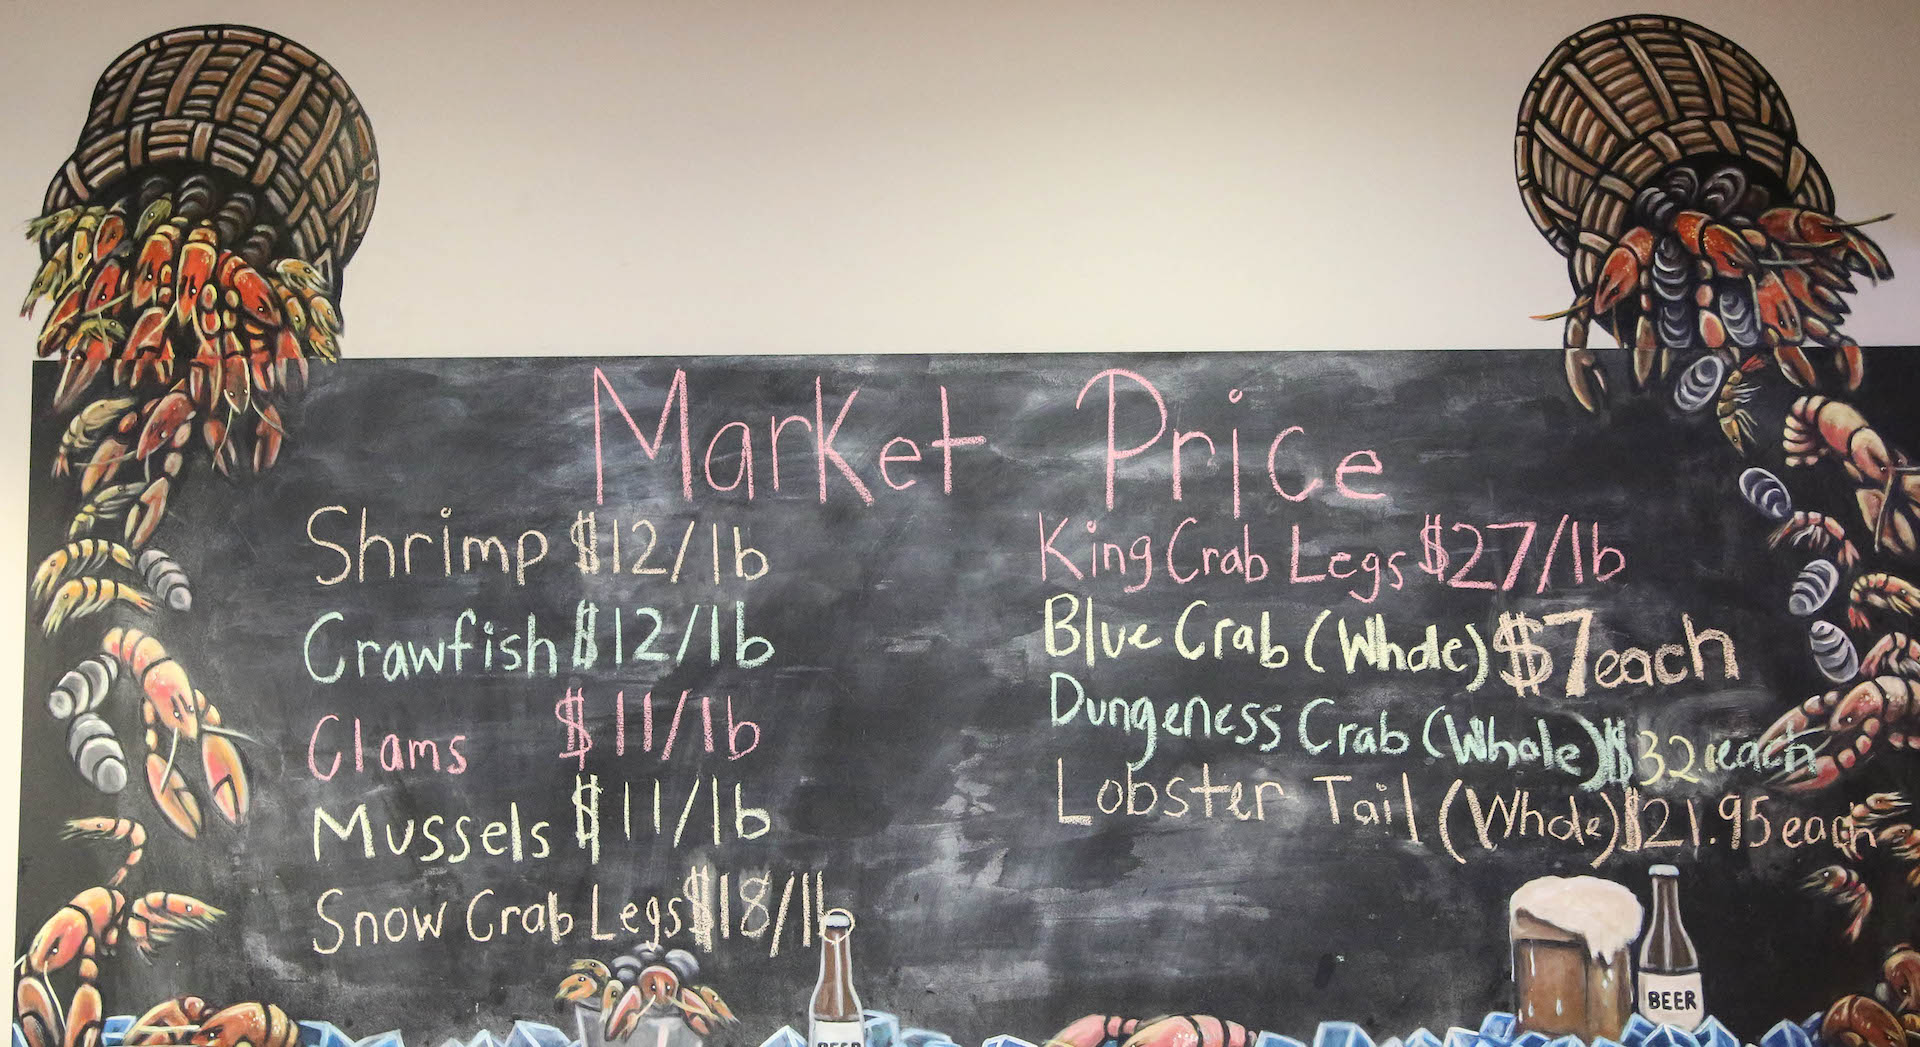 Market Price
Shrimp $12/lb
Crawfish $12/lb
Clams $11/lb
Mussels $11/lb
Snow Crab Legs $18/lb
King Crab Legs $27/lb
Blue Crab (Whole) $7 each
Dungeness Crab (Whole) $32 each
Lobster Tail (Whole) $21.95 each
BEER
BEER